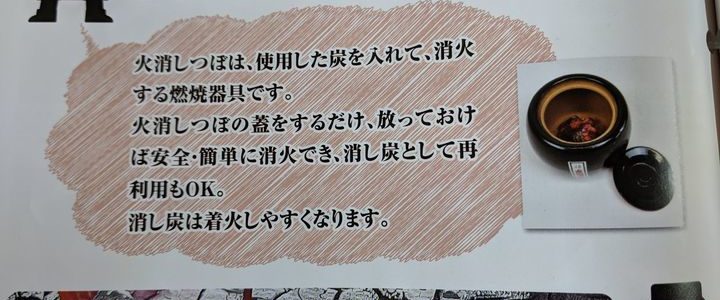 火消しつぼは、使用した炭を入れて、消火
する燃焼器具です。
火消しつぼの蓋をするだけ、放っておけ
ば安全・簡単に消火でき、消し炭として再
利用もOK。
消し炭は着火しやすくなります。